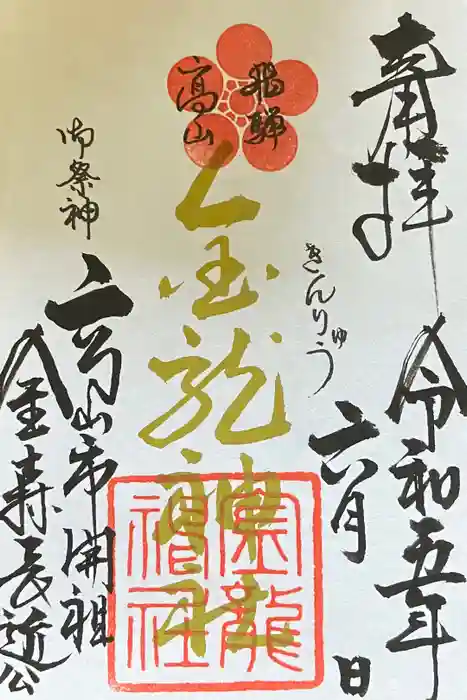 奉拝
令和五年
六月 日
飛騨
高山
金龍神社
きんりゅう
金龍神社
御祭神
高山市開祖
金森長近公